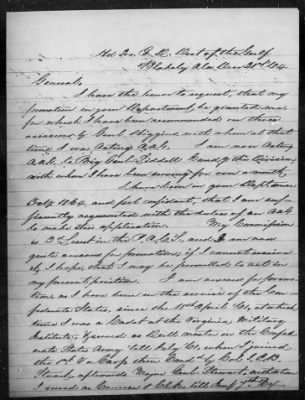 Hd Qrs E. D. Dist of the Gulf
Blakely Ala Dec 21st 1864
General,
I have the honor to request, that my
promotion in your Department, be granted me,
for which I have been recommended on three
occasions by Genl Higgins with whom at that
time I was Acting A.A.G. I am now Acting
A.A.G. to Brig Genl Liddell Comdg the Division,
with whom I have been serving for over a month.
I have been in your Dept since
Oct 1864, and feel confident, that I am suf-
ficiently acquainted with the duties of an A.A.G
to make this application. My Commission
is 2nd Lieut in the P.A.C.S., and I am now
quite anxious for promotion; if I cannot receive
it, I hope, that I may be permitted to act in
my present position. I am anxious for promo-
tion, as I have been in the service of the Con-
federate States, since the April 61, at which
time I was a Cadet of the Virginia Military
Institute; I served as Drill master in the Confed-
erate States Army till July 61, when I joined
the
afterwards Major Genl Stewart, with whom
I served as till